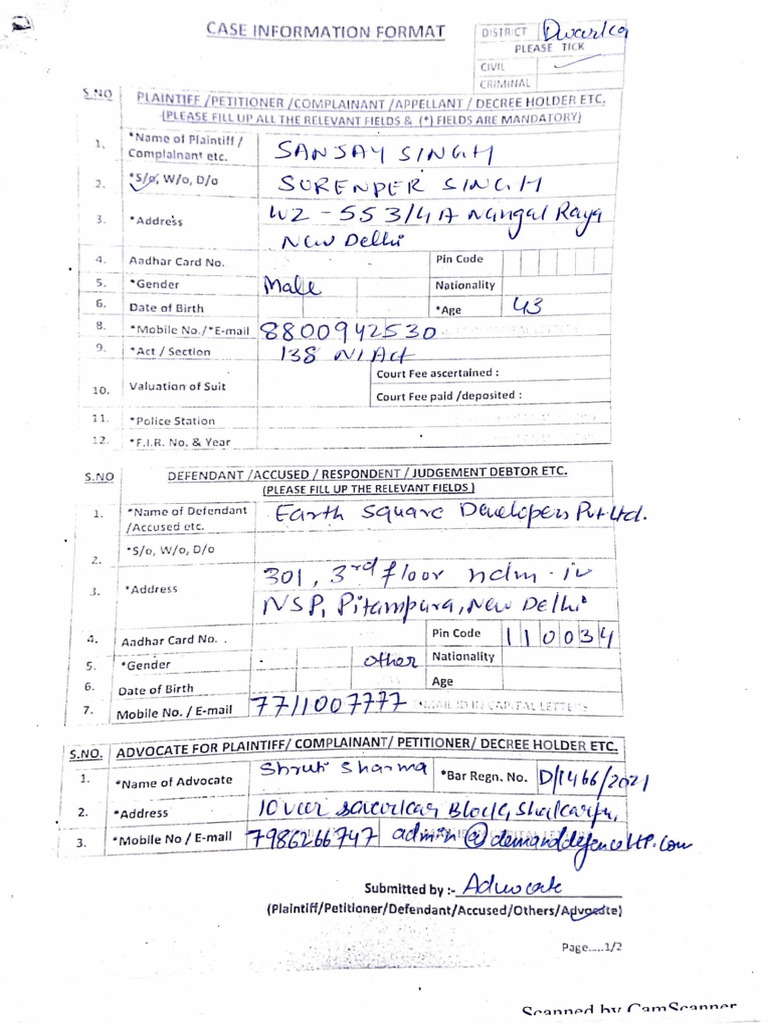 CASE INFORMATION FORMAT
DISTRICT Dwarka
PLEASE TICK
CIVIL
CRIMINAL
S.NO PLAINTIFF /PETITIONER /COMPLAINANT /APPELLANT / DECREE HOLDER ETC.
(PLEASE FILL UP ALL THE RELEVANT FIELDS & (*) FIELDS ARE MANDATORY)
1. *Name of Plaintiff / Complainant etc. SANJAY SINGH
2. *S/o, W/o, D/o SURENDER SINGH
3. *Address WZ - 553/4A Nangal Raya
New Delhi
4. Aadhar Card No. Pin Code
5. *Gender Male Nationality
6. Date of Birth *Age 43
8. *Mobile No./*E-mail 8800942530
9. *Act / Section 138 NI Act
10. Valuation of Suit Court Fee ascertained :
Court Fee paid /deposited :
11. *Police Station
12. *F.I.R. No. & Year
S.NO DEFENDANT /ACCUSED / RESPONDENT / JUDGEMENT DEBTOR ETC.
(PLEASE FILL UP THE RELEVANT FIELDS )
1. *Name of Defendant /Accused etc. Earth Square Developers Pvt Ltd.
2. *S/o, W/o, D/o
3. *Address 301, 3rd floor ndm-iv
NSP, Pitampura, New Delhi
4. Aadhar Card No. . Pin Code 110034
5. *Gender other Nationality
6. Date of Birth Age
7. Mobile No. / E-mail 7711007777 EMAIL ID IN CAPITAL LETTERS
S.NO. ADVOCATE FOR PLAINTIFF/ COMPLAINANT/ PETITIONER/ DECREE HOLDER ETC.
1. *Name of Advocate Shruti Sharma *Bar Regn. No. D/1466/2021
2. *Address 10 veer savarkar Block, Shakarpur,
3. *Mobile No / E-mail 7986266747 admin@demanddefencellp.com
Submitted by :- Advocate
(Plaintiff/Petitioner/Defendant/Accused/Others/Advocate)
Page.....1/2
Scanned by CamScanner